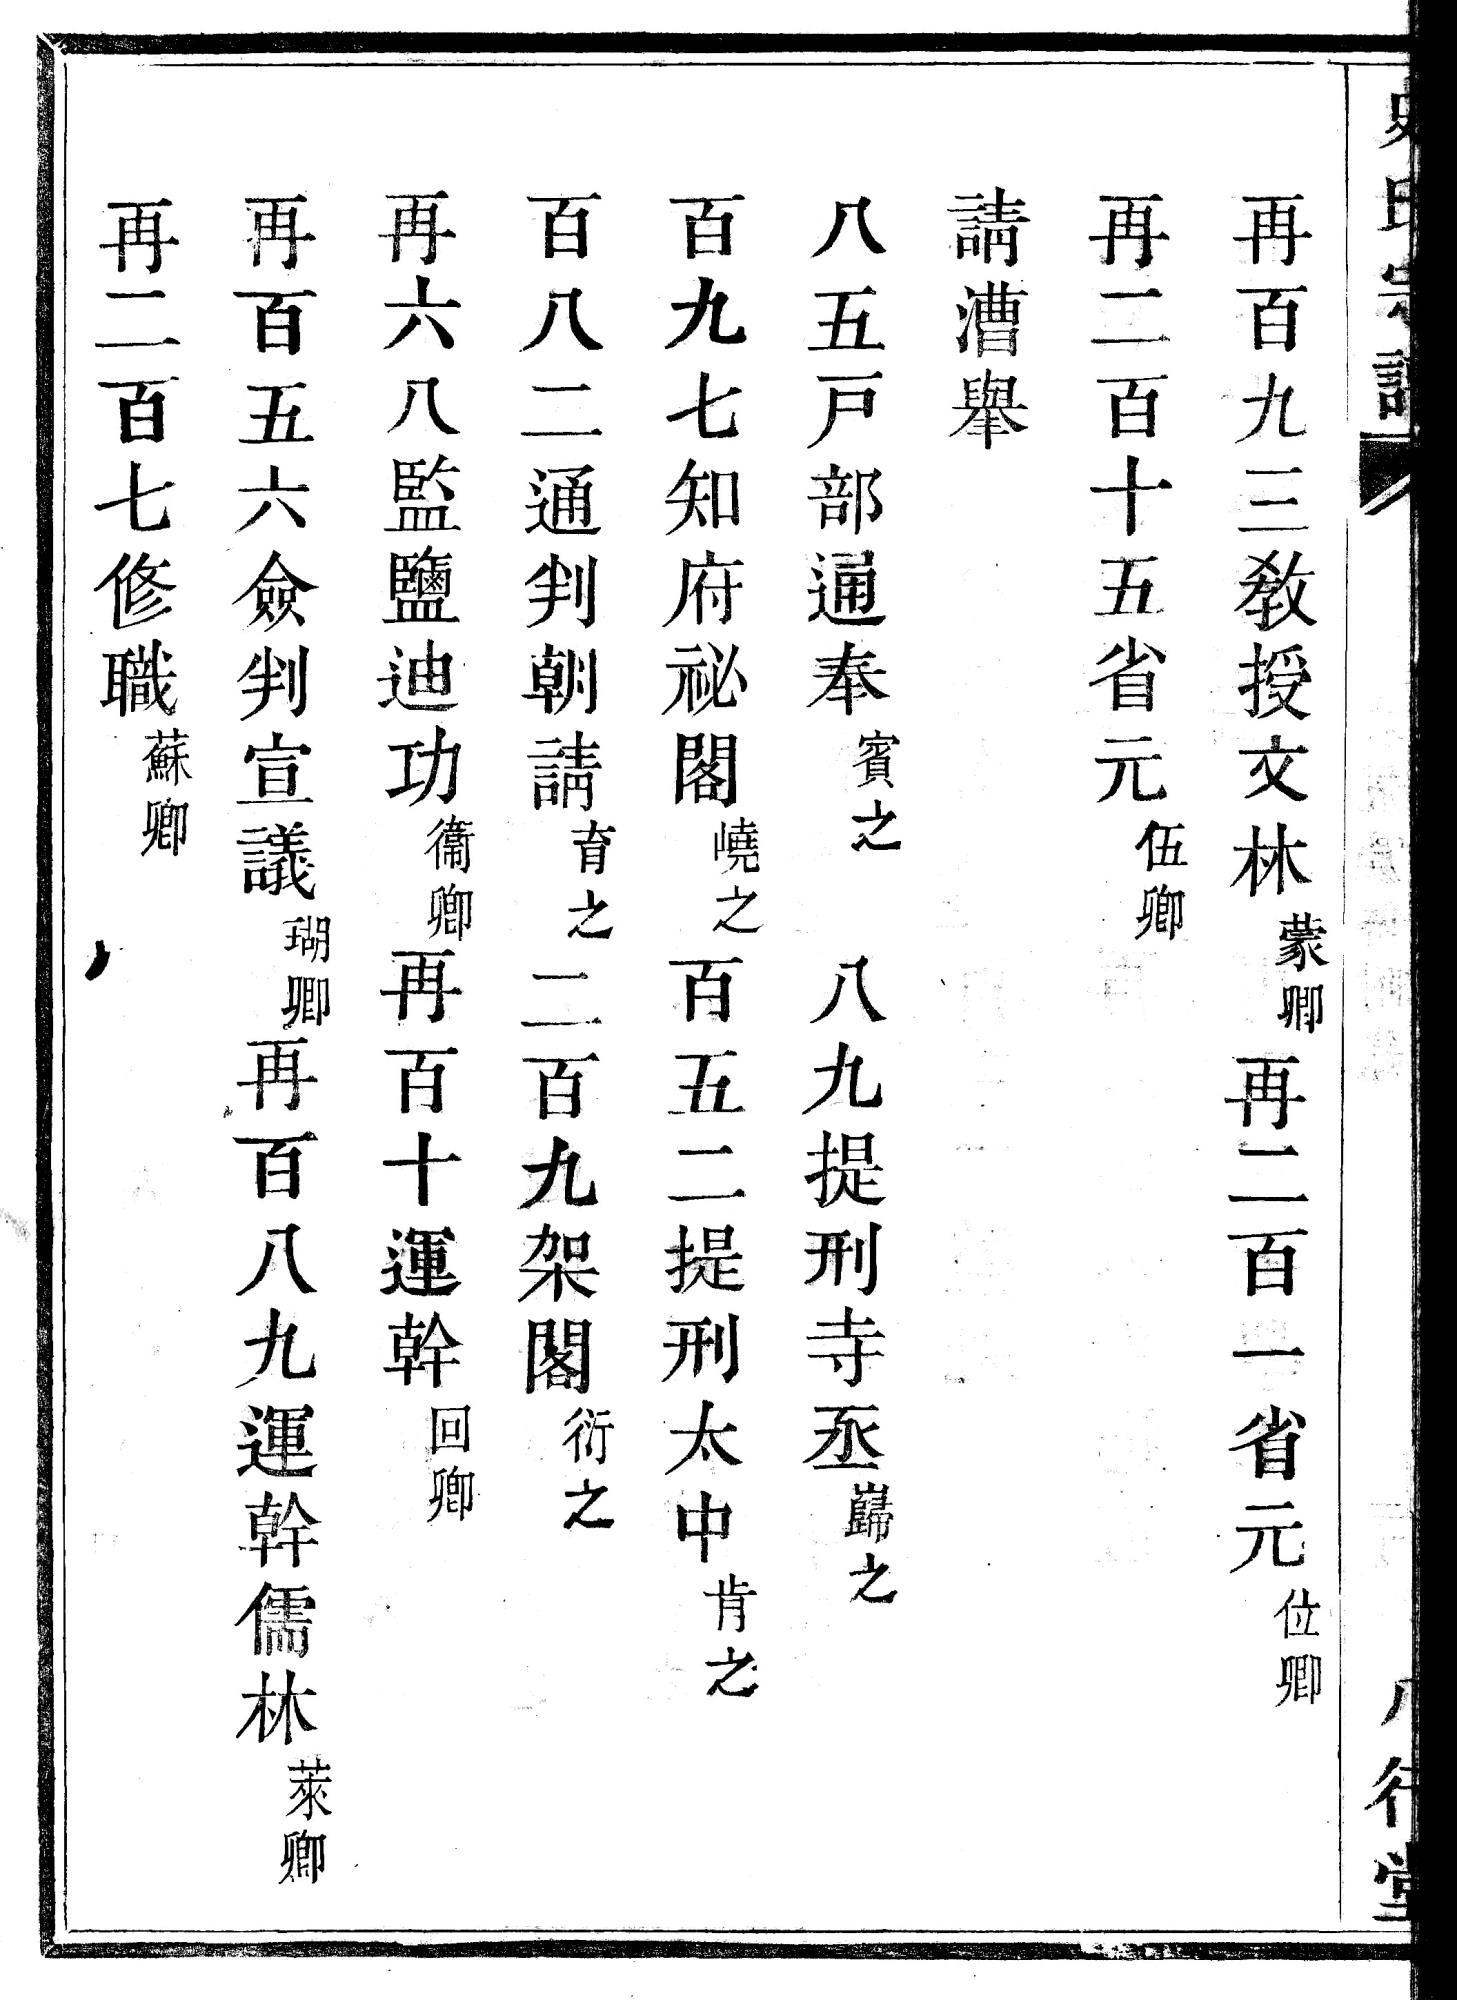 史氏宗譜
八行堂
再百九三教授文林蒙卿再二百一省元位卿
再二百十五省元伍卿
請漕舉
八五戸部通奉賓之　八九提刑寺丞巋之
百九七知府祕閣嶢之百五二提刑太中肯之
百八二通判朝請育之二百九架閣衍之
再六八監鹽迪功衞卿再百十運幹回卿
再百五六僉判宣議瑚卿再百八九運幹儒林萊卿
再二百七修職蘇卿